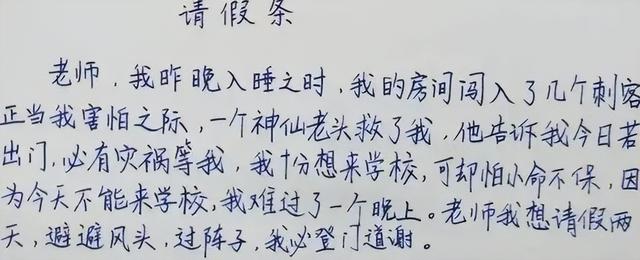 请假条
老师，我昨晚入睡之时，我的房间闯入了几个刺客
正当我害怕之际，一个神仙老头救了我，他告诉我今日若
出门，必有灾祸等我，我十分想来学校，可却怕小命不保，因
为今天不能来学校，我难过了一个晚上。老师我想请假两
天，避避风头，过阵子，我必登门道谢。